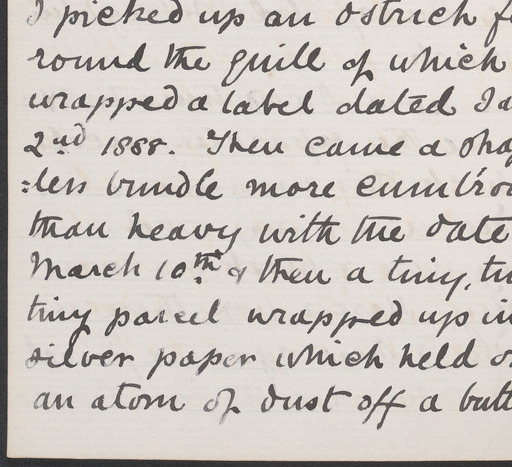 I picked up an ostrich f
round the quill of which
wrapped a label dated Ja
2nd 1888. Then came a shap
=less bundle more cumbro
than heavy with the date
March 10th & then a tiny,
tiny parcel wrapped up in
silver paper which held
an atom of dust off a butt